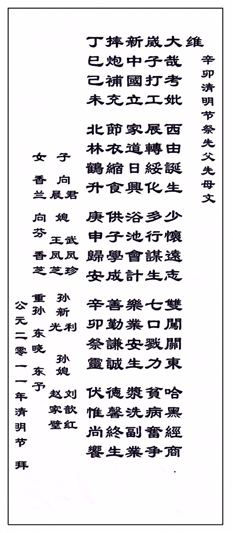 辛卯清明节祭先父先母文
维
大哉考妣 西由誕生 少懷遠志 雙闖關東 哈黑經商
崴子打工 展轉綏化 多行謀生 七口戮力 貧病奮争
新中國立 家道日興 浴池會計 樂業安生 漿洗副業
摔炮補充 節衣縮食 供子學成 善勤謙誠 德馨終生
丁巳己未 北林鶴升 庚申歸安 辛卯祭靈 伏惟尚饗
子 向 君 晨 媳 武凤珍 王凤芝 孙 新 利 光 孙媳 刘歆红 赵家璧
女 香兰 向芬 香芝 重孙 东晓 东予
公元二零一一年清明节 拜